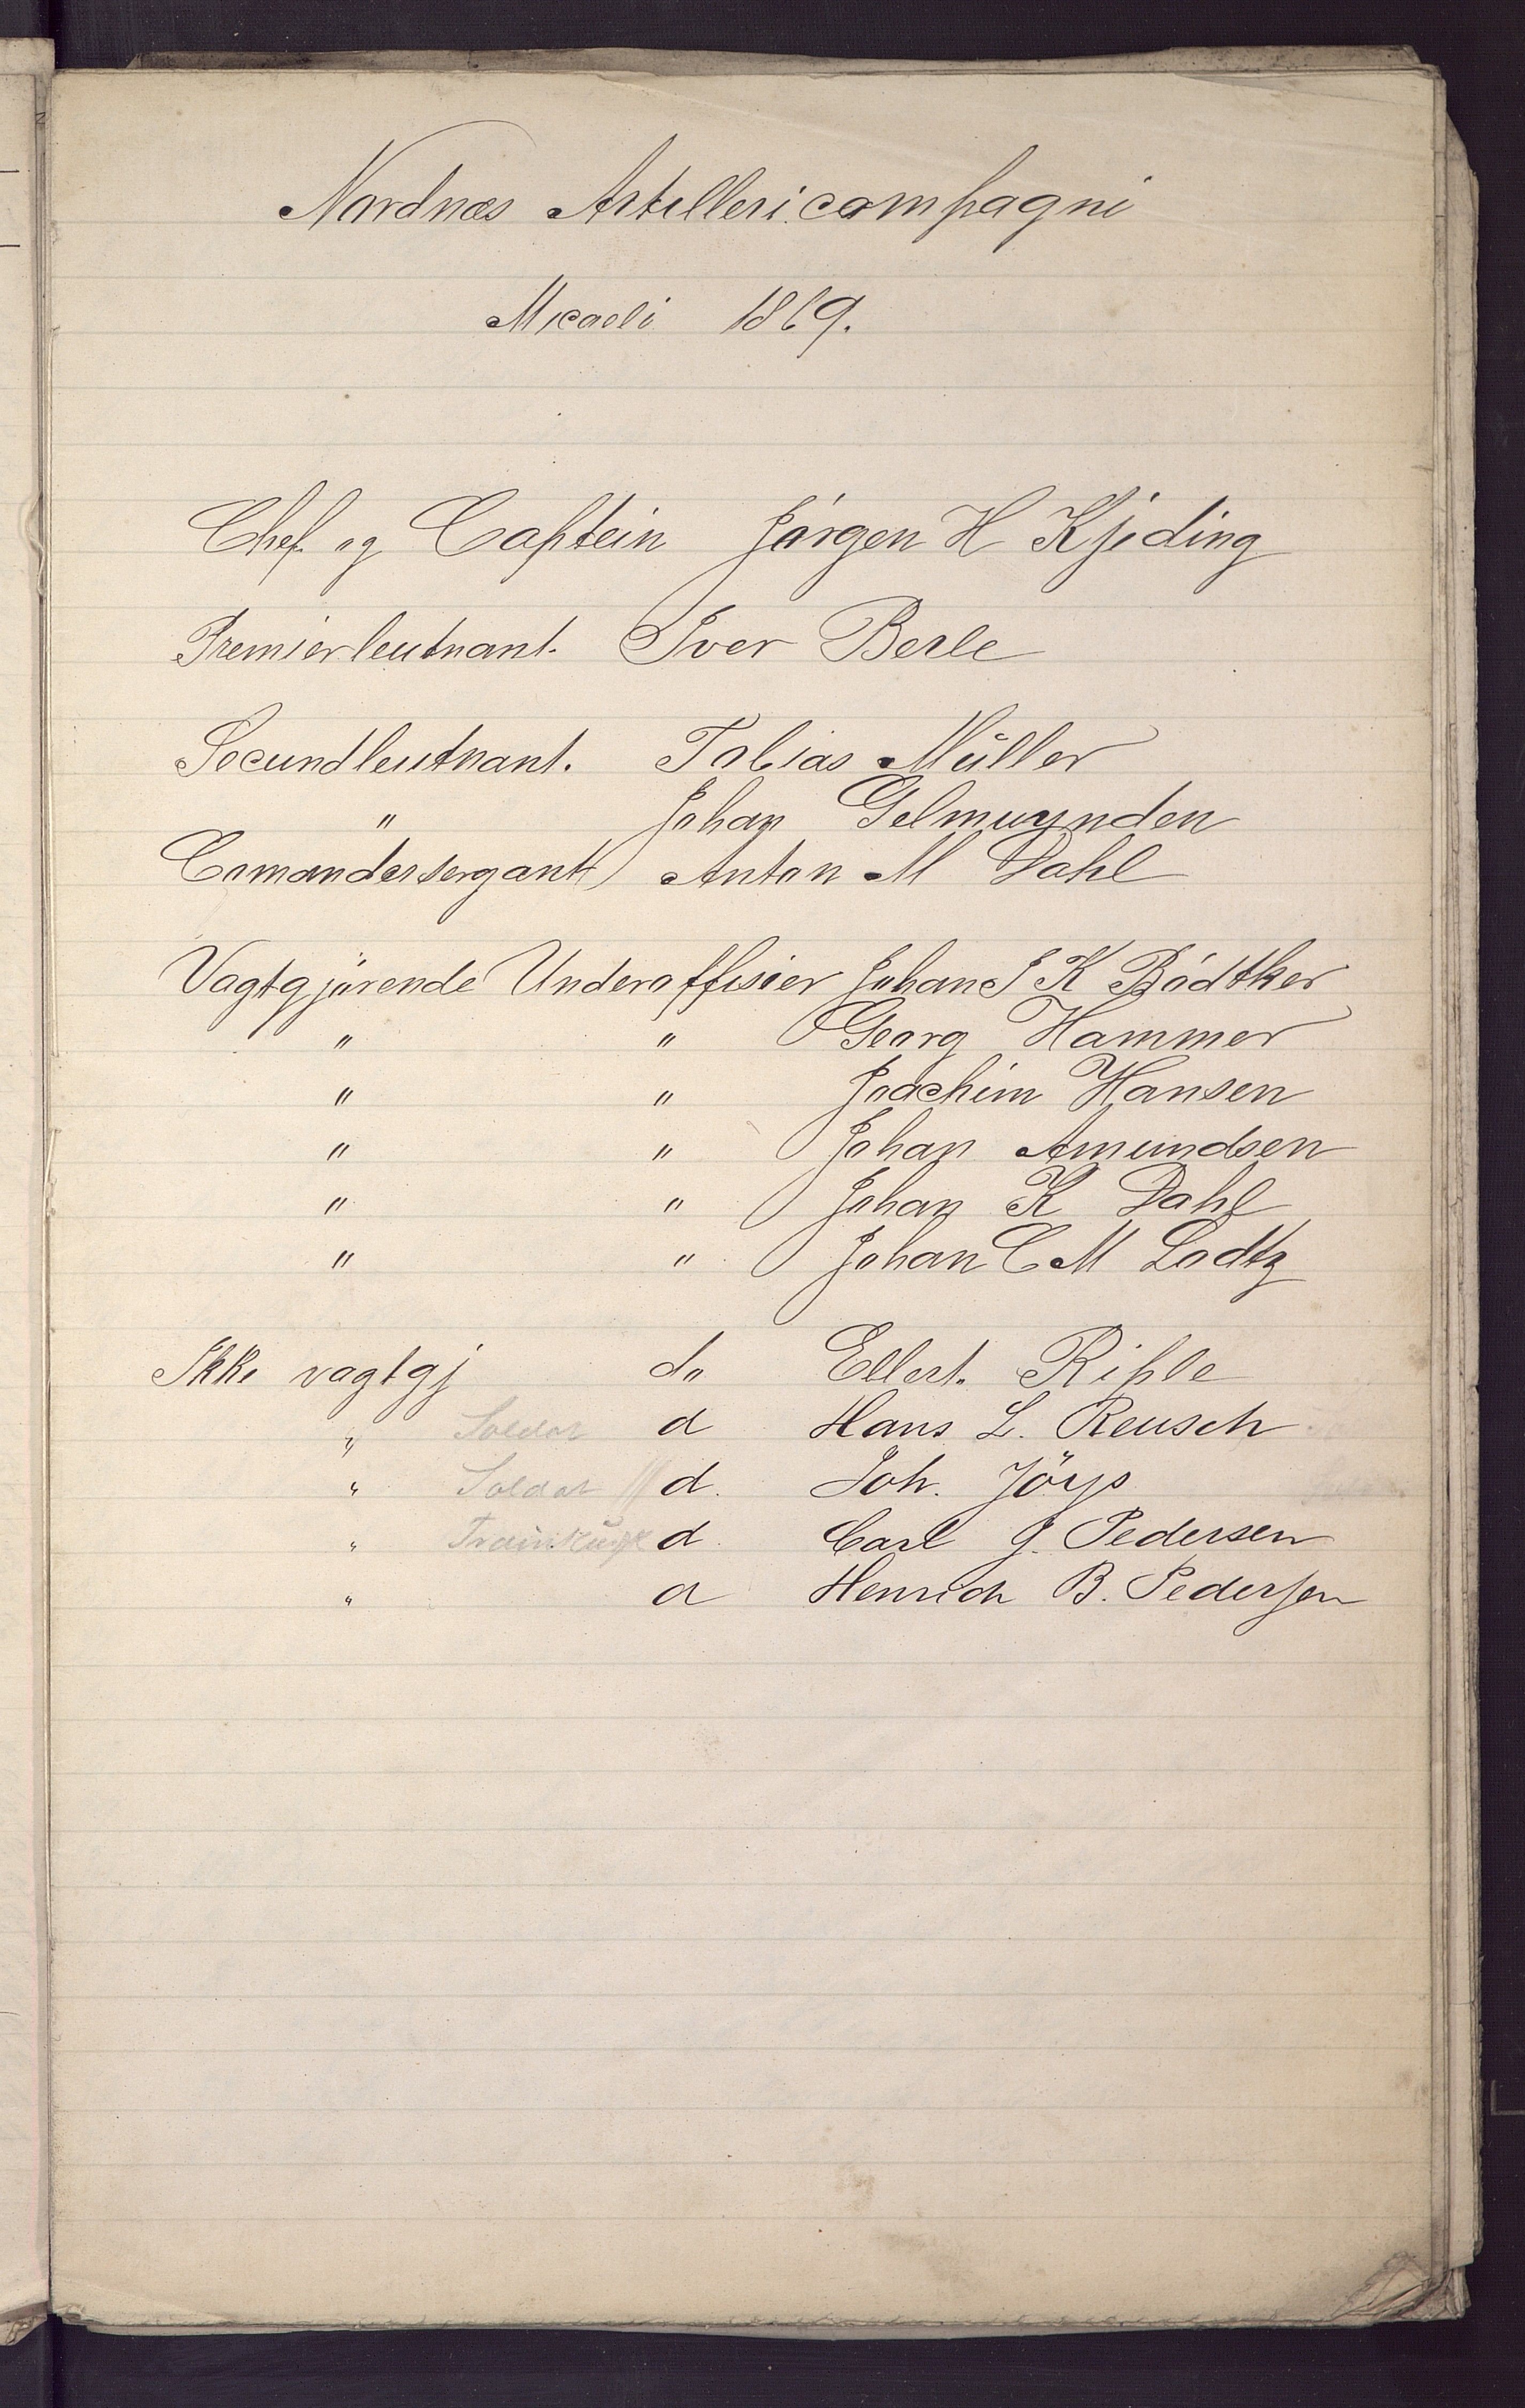 Nordnæs Artilleri compagni
Micaeli 1869.
Chef og Captein Jörgen H Kjeding
Premierleutnant. Iver Berle
Secundleutnant. Tobias Müller
" Johan Gelmuynden
Comandersergant Anton M Dahl
Vagtgjörende Underoffisier Johan J K Bödtker
" " Georg Hammer
" " Joachim Hansen
" " Johan Amundsen
" " Johan K Dahl
" " Johan C M Lodtz
Ikke vagtgj do Ellert. Riple
" Soldat d Hans L. Reusch
" Soldat d. Joh. Jöys
" Trainkusk d. Carl J. Pedersen
" d Henrich B. Pedersen